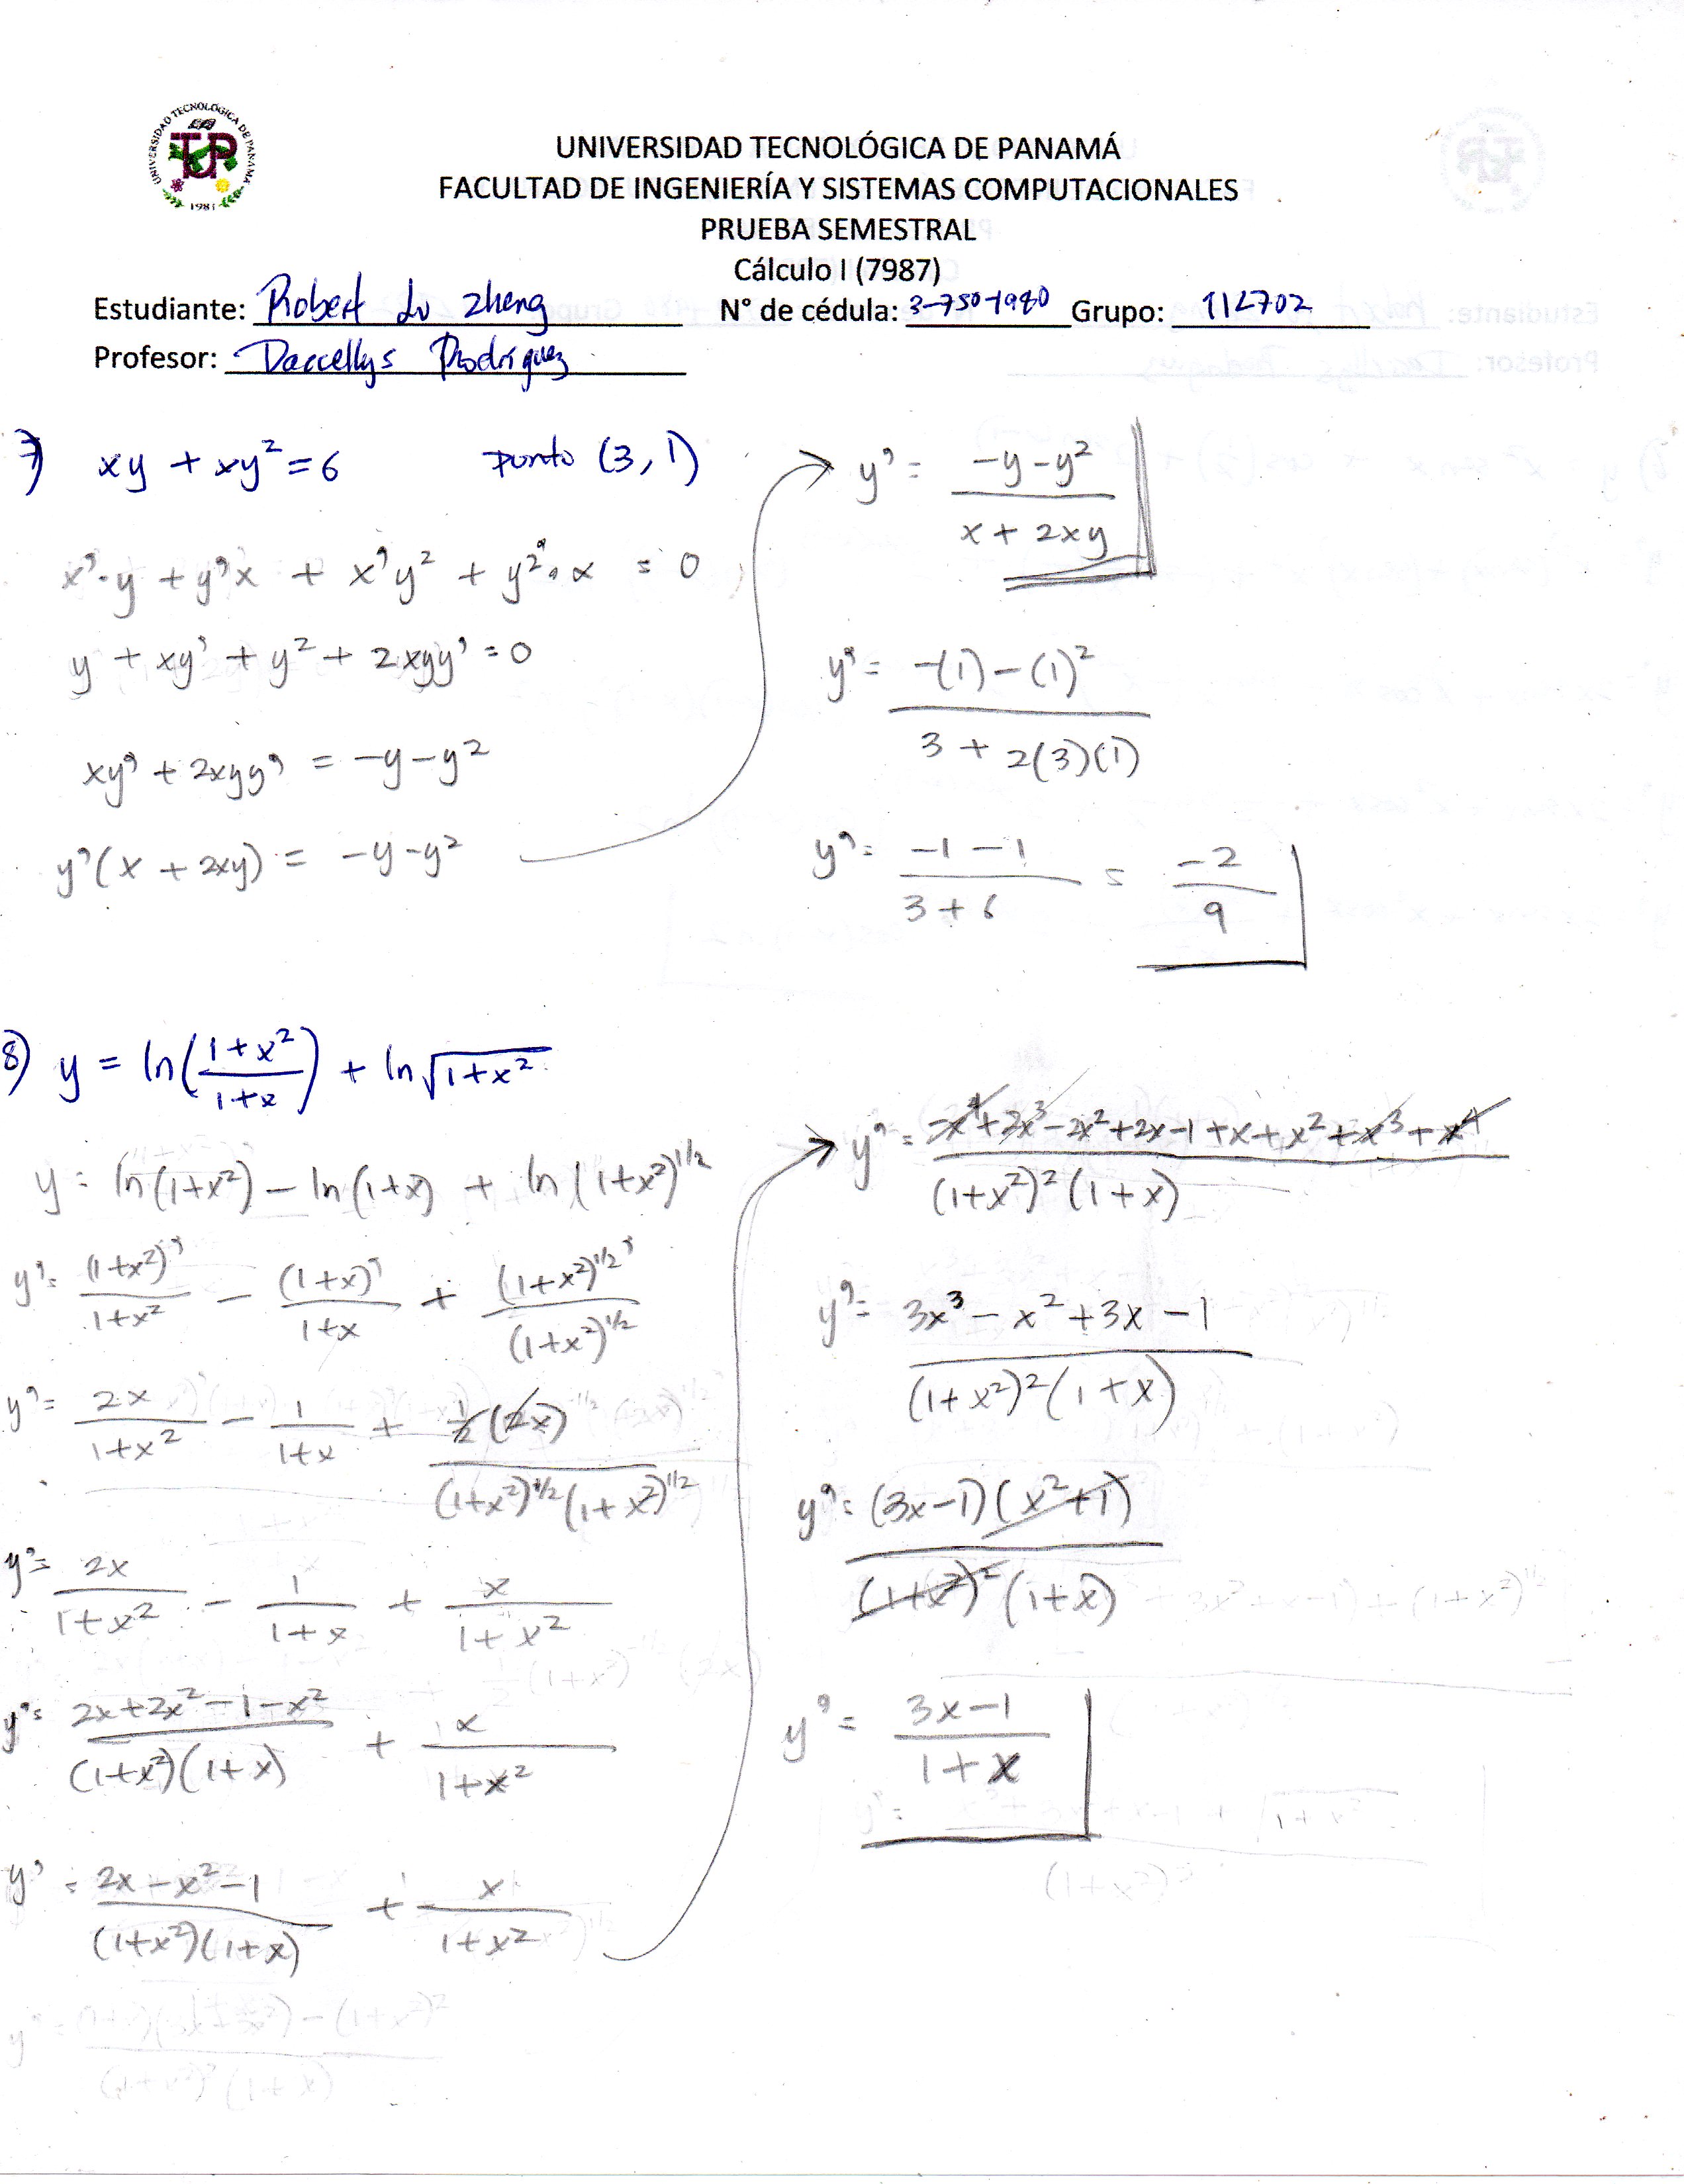 UNIVERSIDAD TECNOLÓGICA DE PANAMÁ
1981
UNIVERSIDAD TECNOLÓGICA DE PANAMÁ
FACULTAD DE INGENIERÍA Y SISTEMAS COMPUTACIONALES
PRUEBA SEMESTRAL
Cálculo I (7987)
Estudiante: Robert Lu Zheng N° de cédula: 3-750-1980 Grupo: 11L702
Profesor: Darcellys Rodríguez
7) xy + xy² = 6 punto (3, 1)
x'·y + y'x + x'y² + y²'·x = 0
y + xy' + y² + 2xyy' = 0
xy' + 2xyy' = -y-y²
y'(x + 2xy) = -y-y²
y' = (-y-y²)/(x + 2xy)
y' = (-(1)-(1)²)/(3 + 2(3)(1))
y' = (-1-1)/(3+6) = -2/9
8) y = ln((1+x²)/(1+x)) + ln√(1+x²)
y = ln(1+x²) - ln(1+x) + ln(1+x²)^1/2
y' = (1+x²)'/(1+x²) - (1+x)'/(1+x) + (1+x²)^1/2'/(1+x²)^1/2
y' = 2x/(1+x²) - 1/(1+x) + 1/2(2x)/((1+x²)^1/2(1+x²)^1/2)
y' = 2x/(1+x²) - 1/(1+x) + x/(1+x²)
y' = (2x+2x²-1-x²)/((1+x²)(1+x)) + x/(1+x²)
y' = (2x-x²-1)/((1+x²)(1+x)) + x/(1+x²)
y' = (-x⁴+2x³-2x²+2x-1+x+x²+x³+x⁴)/((1+x²)²(1+x))
y' = (3x³-x²+3x-1)/((1+x²)²(1+x))
y' = (3x-1)(x²+1)/((1+x²)²(1+x))
y' = (3x-1)/(1+x)